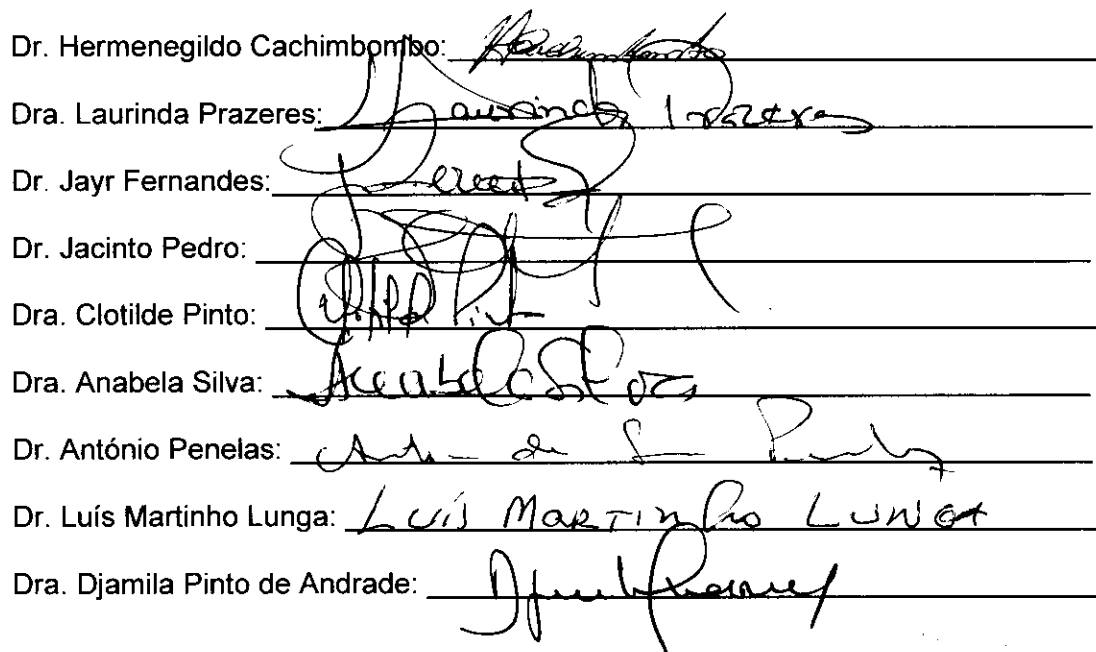 Dr. Hermenegildo Cachimbombo:
Dra. Laurinda Prazeres: Laurinda Prazeres
Dr. Jayr Fernandes:
Dr. Jacinto Pedro:
Dra. Clotilde Pinto:
Dra. Anabela Silva:
Dr. António Penelas:
Dr. Luís Martinho Lunga: LUÍS MARTINho LUNGA
Dra. Djamila Pinto de Andrade: